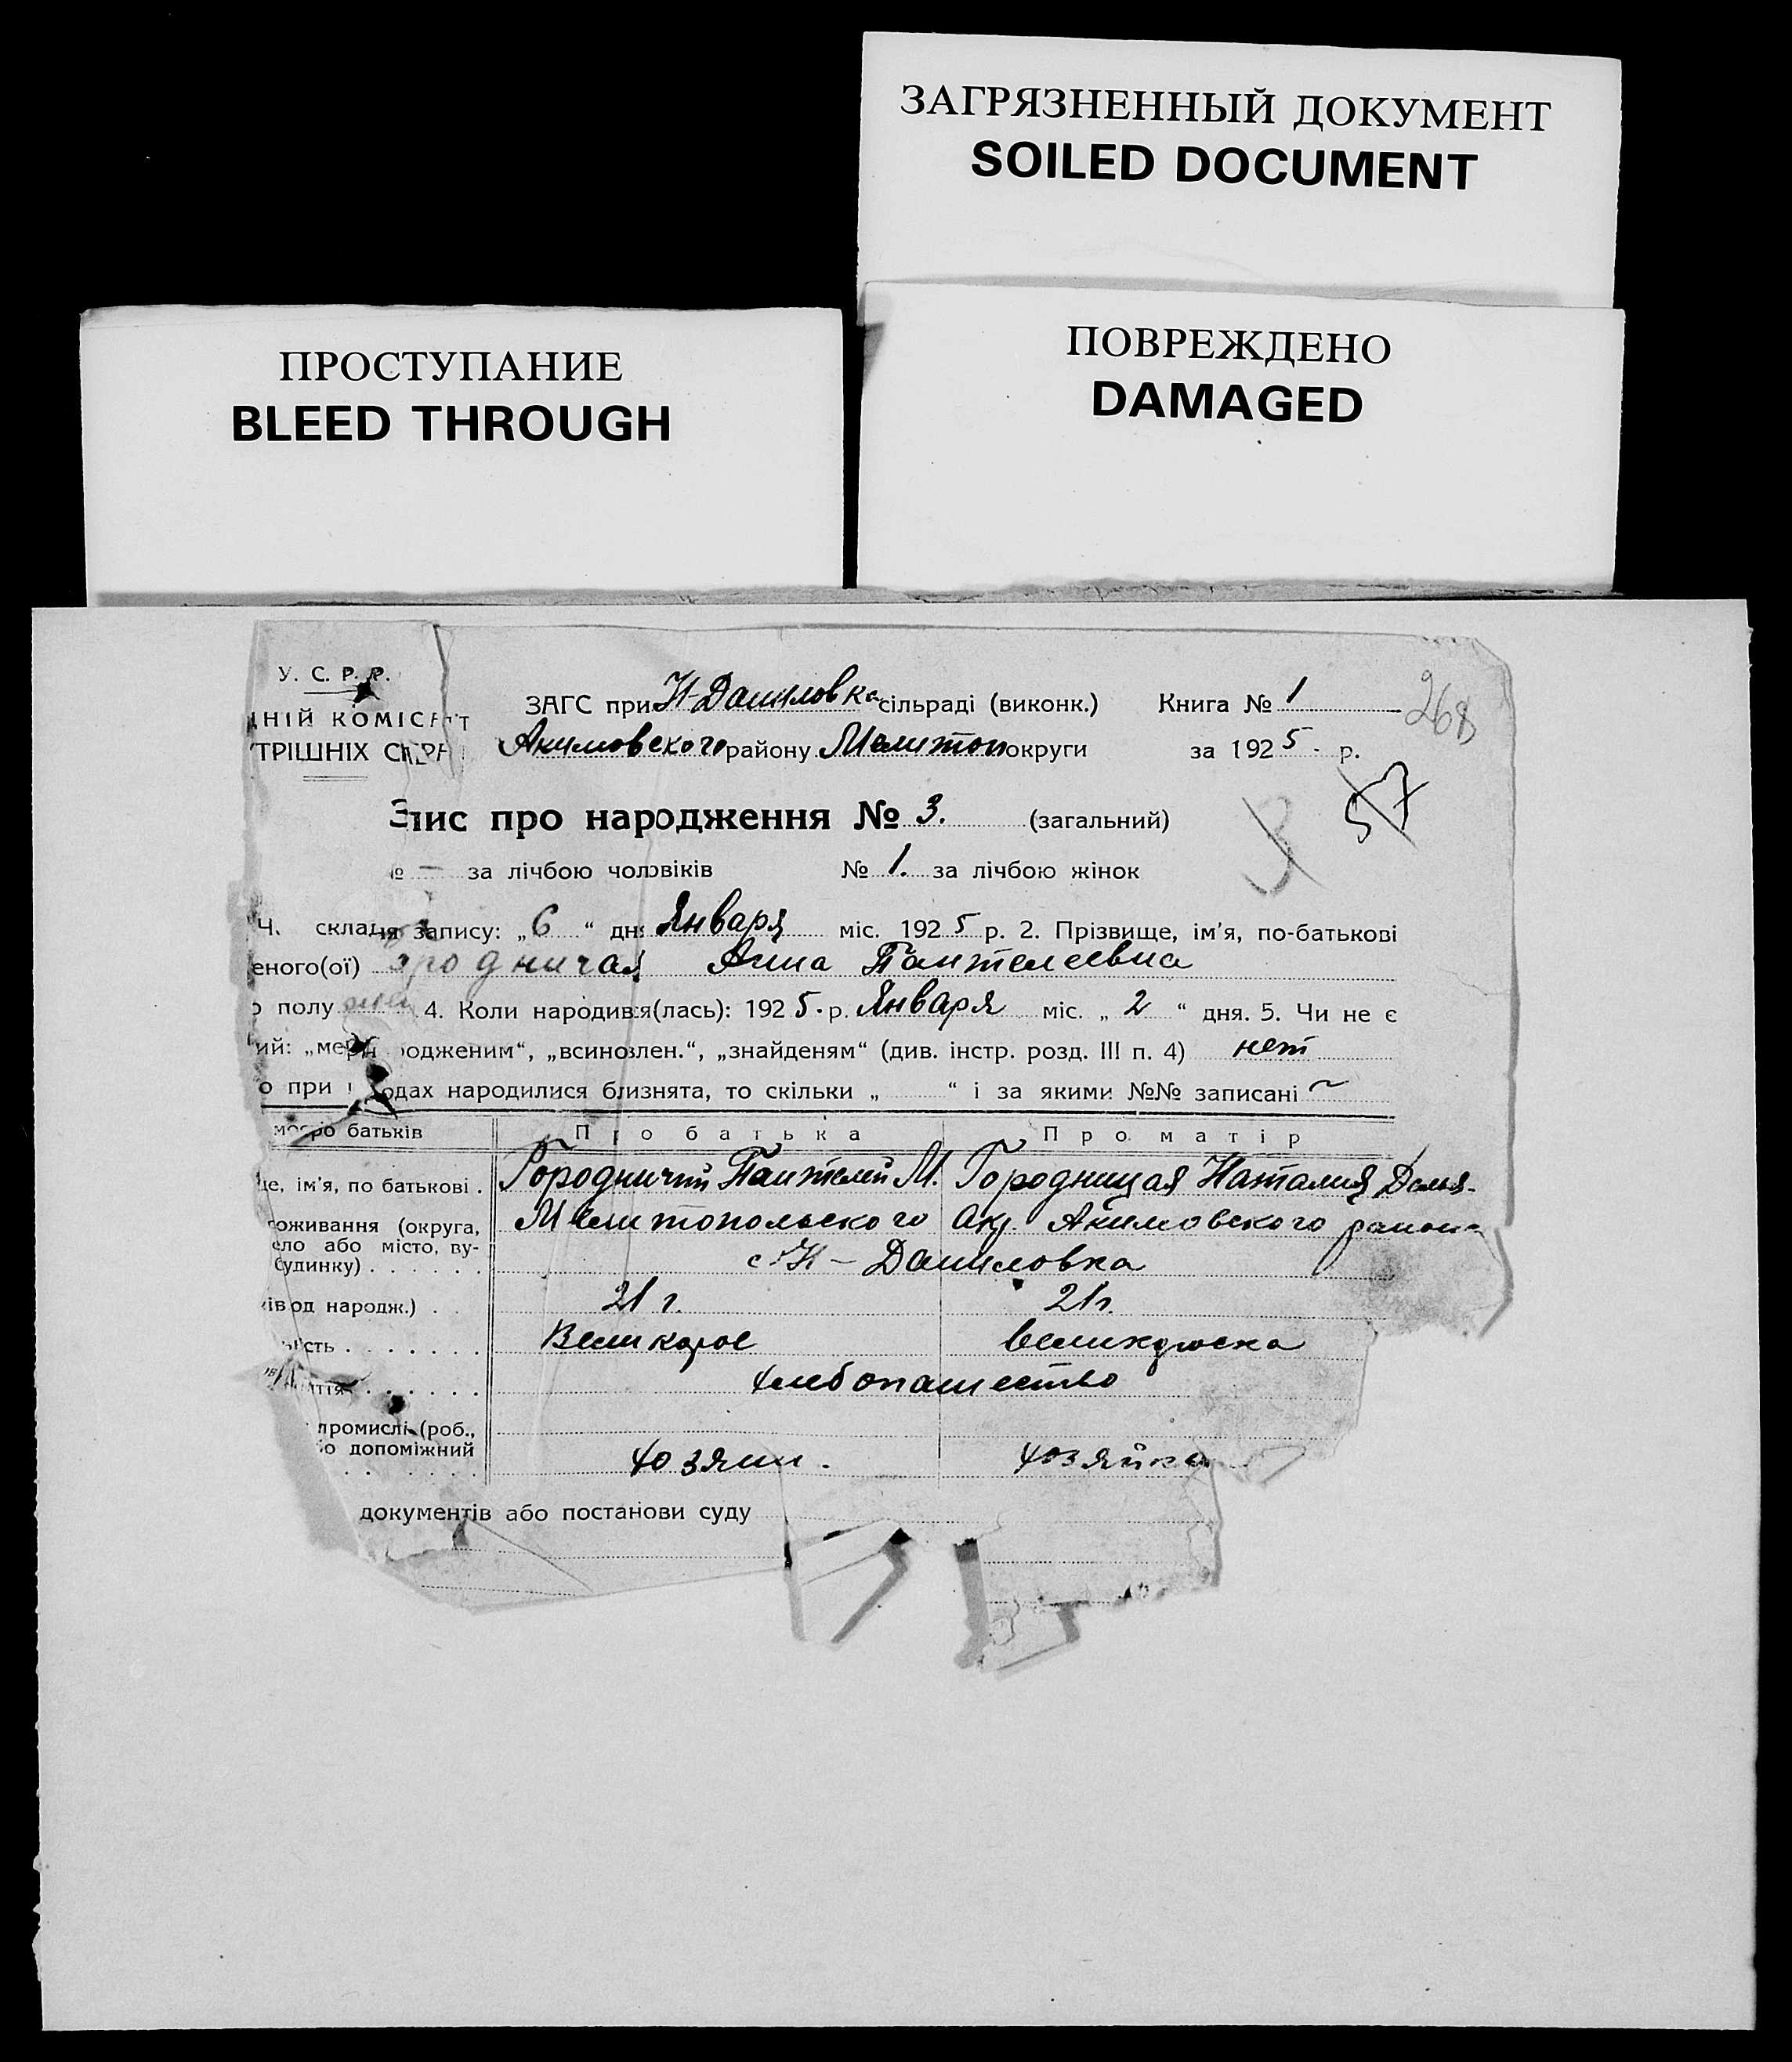 ЗАГРЯЗНЕННЫЙ ДОКУМЕНТ
SOILED DOCUMENT
ПРОСТУПАНИЕ
BLEED THROUGH
ПОВРЕЖДЕНО
DAMAGED
У. С. Р. Р.
ДНІЙ КОМІСАРІ'Т
ТРІШНІХ СПРА
ЗАГС при Н-Даниловка сільраді (виконк.) Книга № 1
268
Акимовского району Мелитоп округи за 1925 р.
57
Запис про народження № 3. (загальний)
3
№ — за лічбою чоловіків № 1. за лічбою жінок
Ч. складня запису: „6“ дня Января міс. 1925 р. 2. Прізвище, ім'я, по-батькові
еного(ої) ородничая Анна Пантелеевна
о полу жен 4. Коли народився(лась): 1925. р. Января міс. „2“ дня. 5. Чи не є
ий: „мертвородженим“, „всиновлен.“, „знайденям“ (див. інстр. розд. III п. 4) нет
о при родах народилися близнята, то скільки „ “ і за якими №№ записані ~
про батьків Про батька Про матір
ще, ім'я, по батькові . Городничий Пантелей М. Городницая Наталия Демья-
оживання (округа, Мелитопольского Окр. Акимовского района
ело або місто, ву-
будинку) . . . . . . с. Н-Даниловка
ків од народж.) . . 21 г. 21 г.
ість . . . . . . . Великорос великороска
яття . . . . . . хлебопашество
промислі (роб.,
о допоміжний
хозяин. хозяйка
документів або постанови суду